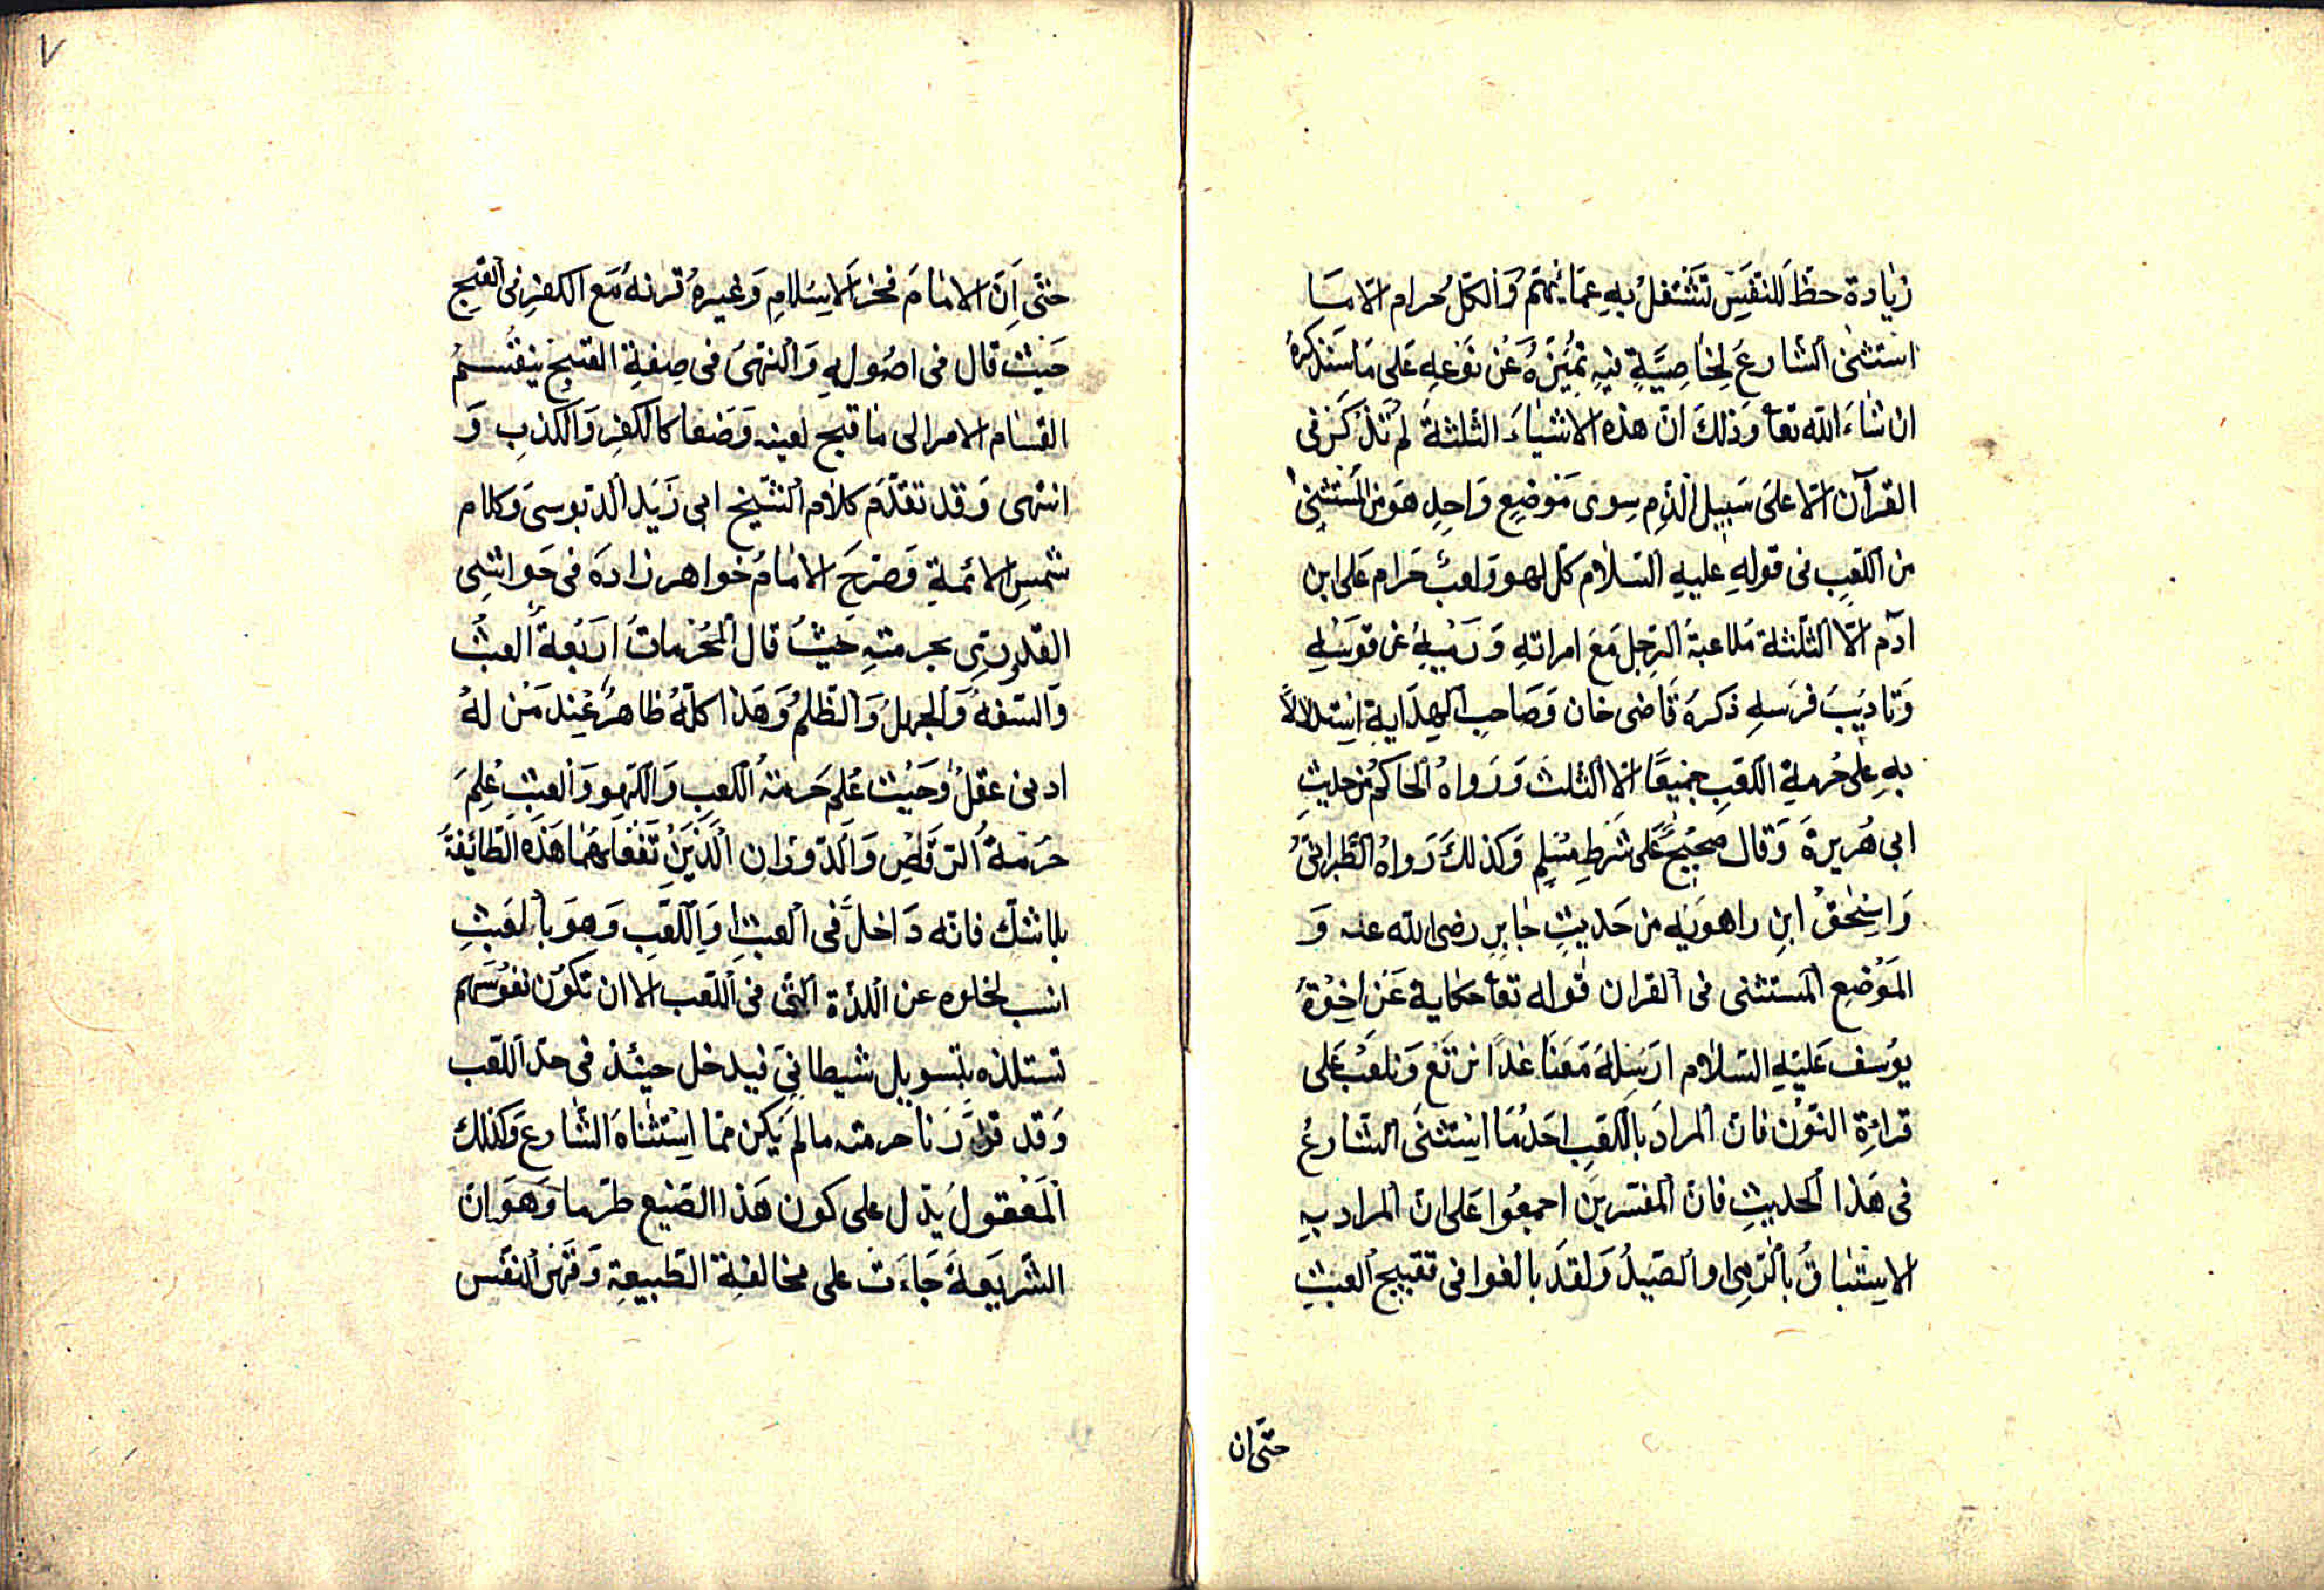 زيادة حظ للنفس تشتغل به عما يهم والكل حرام الا ما
استثنى الشارع لخاصية فيه تميزه عن نوعه على ما سنذكره
ان شاء الله تعا وذلك ان هذه الاشياء الثلثة لم تذكر فى
القرآن الا على سبيل الذم سوى موضع واحد هو من المستثنى
من اللعب فى قوله عليه السلام كل لهو ولعب حرام على ابن
ادم الا الثلثة ملاعبة الرجل مع امراته ورميه عن قوسه
وتاديب فرسه ذكره قاضى خان وصاحب الهداية استدلالا
به على حرمة اللعب جميعا الا الثلث ورواه الحاكم من حديث
ابى هريرة وقال صحيح على شرط مسلم وكذلك رواه الطبرانى
واسحق ابن راهويه من حديث جابر رضى الله عنه و
الموضع المستثنى فى القران قوله تعا حكاية عن اخوة
يوسف عليه السلام ارسله معنا غدا نرتع ونلعب على
قراءة النون فان المراد باللعب احد ما استثنى الشارع
فى هذا الحديث فان المفسرين اجمعوا على ان المراد به
الاستباق بالرمى او الصيد ولقد بالغوا فى تقبيح العبث
حتى ان
٧
حتى ان الامام فخر الاسلام وغيره قرنه مع الكفر فى القبح
حيث قال فى اصوله والنهى فى صفة القبح ينقسم
انقسام الامر الى ما قبح لعينه وضعا كالكفر والكذب و
انتهى وقد تقدم كلام الشيخ ابى زيد الدبوسى وكلام
شمس الائمة وصرح الامام خواهر زاده فى حواشى
القدورى بحرمته حيث قال المحرمات اربعة العبث
والسفه والجهل والظلم وهذا كله ظاهر عند من له
ادنى عقل وحيث علم حرمة اللعب واللهو والعبث علم
حرمة الرقص والدوران الذين تفعلهما هذه الطائفة
بلا شك فانه داخل فى العبث او اللعب وهو بالعبث
انسب لخلوه عن اللذة التى فى اللعب الا ان تكون نفوسهم
تستلذه بتسويل شيطانى فيدخل حينئذ فى حد اللعب
وقد قررنا حرمته ما لم يكن مما استثناه الشارع وكذلك
المعقول يدل على كون هذا الصنيع طرما وهو ان
الشريعة جاءت على مخالفة الطبيعة وقهر النفس